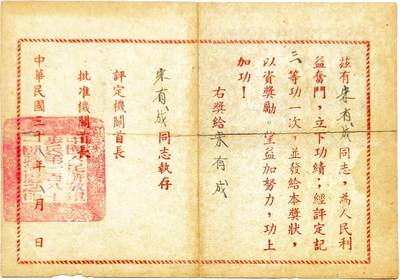 茲有宋有成同志,為人民利
益奮鬥,立下功績;經評定記
三等功一次,並發給本獎狀,
以資獎勵。望益加努力,功上
加功!
右獎給宋有成
宋有成同志執存
評定機關首長
批准機關首長
中華民國三十八年六月 日